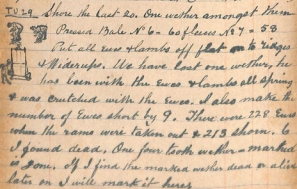 IV 29 Shore the last 20. One wether amongst them
Pressed Bale No 6 - 60 fleeces No 7 - 53
Put all ewes & lambs off flat on to ridges
& Widerups. We have lost one wether, he
has been with the Ewes & lambs all spring
& was crutched with the Ewes. I also make the
number of Ewes short by 9. There were 228 Ewes
when the rams were taken out & 213 shorn. 6
I found dead. One four tooth wether - marked
is gone. If I find the marked wether dead or alive
later on I will mark it here